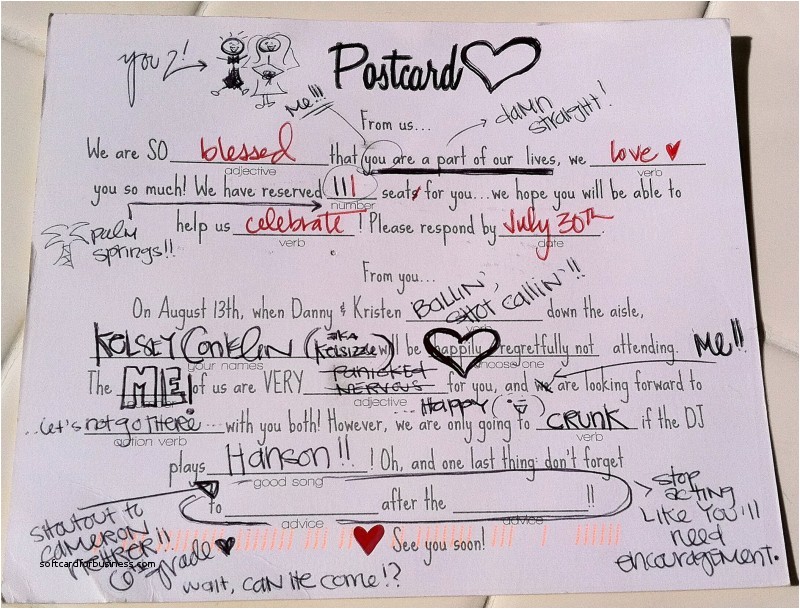 you 2!
Postcard
Me!!!
From us...
damn straight!
We are SO blessed that you are a part of our lives, we love
adjective
verb
you so much! We have reserved 111 seats for you...we hope you will be able to
number
palm springs!!
help us celebrate! Please respond by July 30th.
verb
date
From you...
On August 13th, when Danny & Kristen BALLIN', SHOT CALLIN'!! down the aisle,
verb
KELSEY CONKLIN (AKA KELSIZZLE) will be happily regretfully not attending. Me!!
your names
choose one
The ME of us are VERY PANICKED NERVOUS for you, and we are looking forward to
adjective
...HAPPY
..let's not go there... with you both! However, we are only going to CRUNK if the DJ
action verb
verb
plays Hanson!! ! Oh, and one last thing: don't forget
good song
to after the !!
advice
advice
stop acting like you'll need encouragement.
shoutout to Cameron 6th grade
See you soon!
wait, can he come!?
softcardforbusiness.com